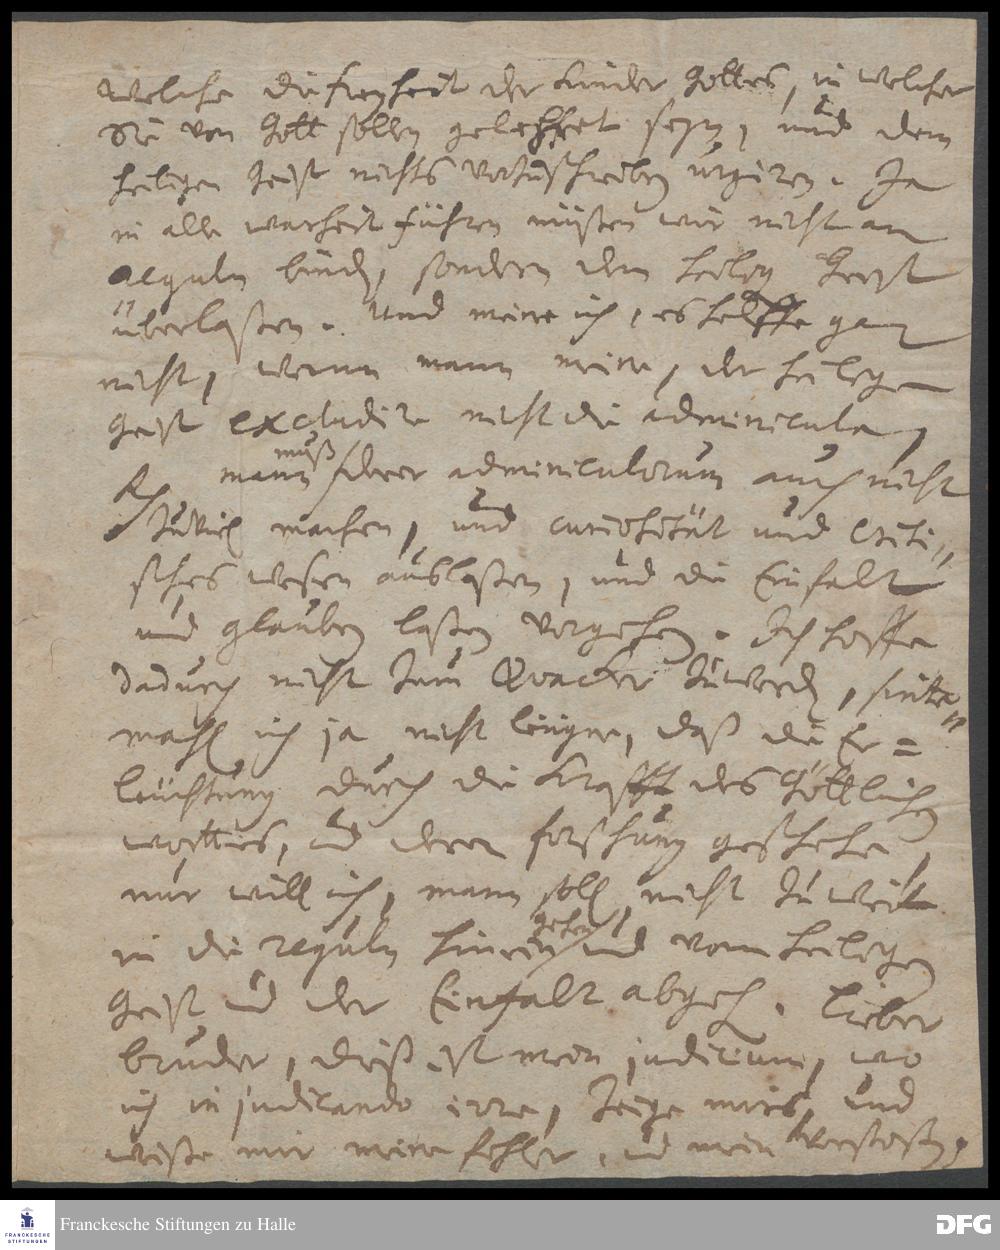 welche die freyheit der Kinder Gottes, in welcher
sie von Gott sollen gelehret seyn, und dem
heiligen Geist nichts vorzuschreiben urgiren. Ja
in alle warheit führen müßen wir nicht an
reguln binden, sondern dem heiligen Geist
überlaßen. Und meine ich, es helffe gar
nicht, wenn mann meine, der heilige
Geist excludire nicht die adminicula,
muß
mann derer adminiculorum auch nicht
zu viel machen, und curiosität und Criti-
sches wesen auslaßen, und die Einfalt
und glauben laßen vorgehen. Ich hoffe
dadurch nicht zum Quacker zu werden, sinte-
mahl ich ja nicht leügne, daß die Er=
leüchtung durch die Krafft des Göttlichen
worttes, und deren forschung geschehe,
nur will ich, mann soll nicht zu weit
gehen
in die reguln hinein und vom heiligen
Geist und der Einfalt abgehen. Lieber
bruder, dieß ist mein judicium, wo
ich in judicando irre, zeige mirs, und
weiße mir meine fehler, und mein verstoßen,
Franckesche Stiftungen zu Halle
FRANCKESCHE
STIFTUNGEN
DFG